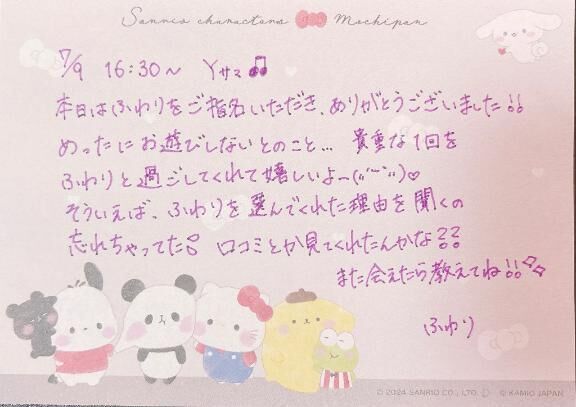 Sanrio characters Mochipan
7/9 16:30～ Yサマ♫
本日はふわりをご指名いただき、ありがとうございました!!
めったにお遊びしないとのこと… 貴重な1回を
ふわりと過ごしてくれて嬉しいよー(〃˘ ˘〃)♡
そういえば、ふわりを選んでくれた理由を聞くの
忘れちゃってた! 口コミとか見てくれたんかな??
また会えたら教えてね!!✧✧
ふわり
© 2024 SANRIO CO., LTD. Ⓛ © KAMIO JAPAN